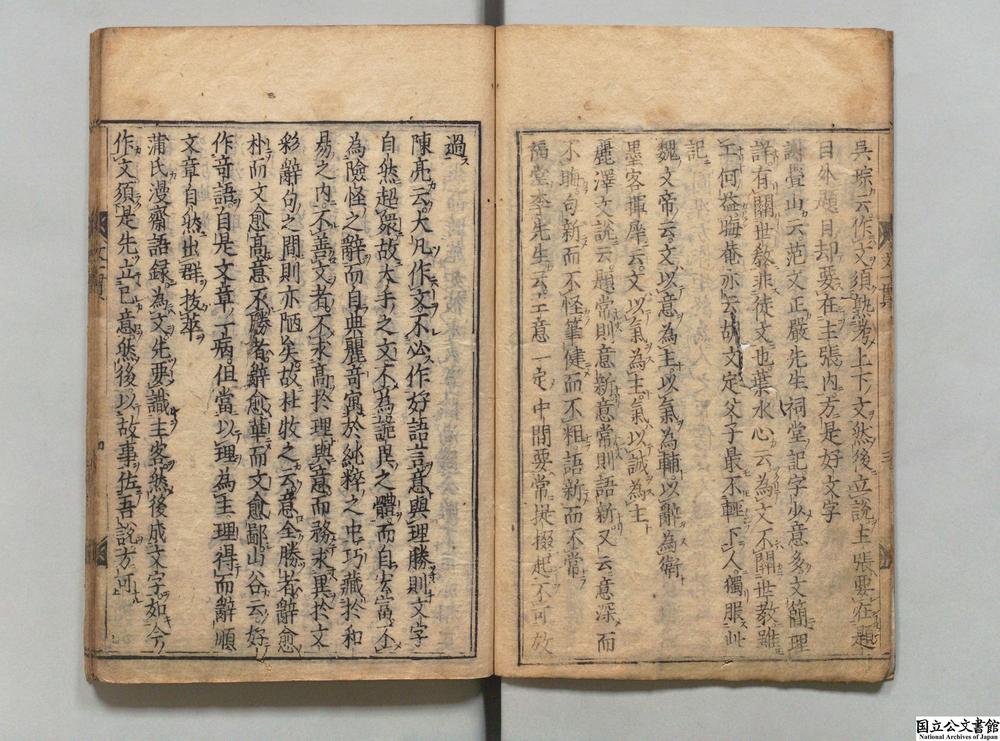 吳琮云作文須熟考上下文然後立說主張要在題
目外題目却要在主張內方是好文字
謝疊山云范文正嚴先生祠堂記字少意多文簡理
詳有關世敎非徒文也葉水心云為文不關世敎雖
工何益晦庵亦云胡文定父子最不輕下人獨服此
記
魏文帝云文以意為主以氣為輔以辭為衛
墨客揮犀云文以氣為主氣以誠為主
麗澤文說云題常則意新意常則語新又云意深而
不晦句新而不怪筆健而不粗語新而不常
福堂李先生云立意一定中間要常提掇起不可放
過
陳亮云大凡作文不必作好語言意與理勝則文字
自然超衆故大手之文不為詭異之體而自然宏富不
為險怪之辭而自典麗奇寓於純粹之中巧藏於和
易之內不善文者不求高於理與意而務求異於文
彩辭句之間則亦陋矣故杜牧之云意全勝者辭愈
朴而文愈高意不勝者辭愈華而文愈鄙山谷云好
作奇語自是文章一病但當以理為主理得而辭順
文章自然出群拔萃
蒲氏漫齋語録為文先要識主客然後成文字如今
作文須是先立己意然後以故事佐吾說方可
文一貫
三
国立公文書館
National Archives of Japan